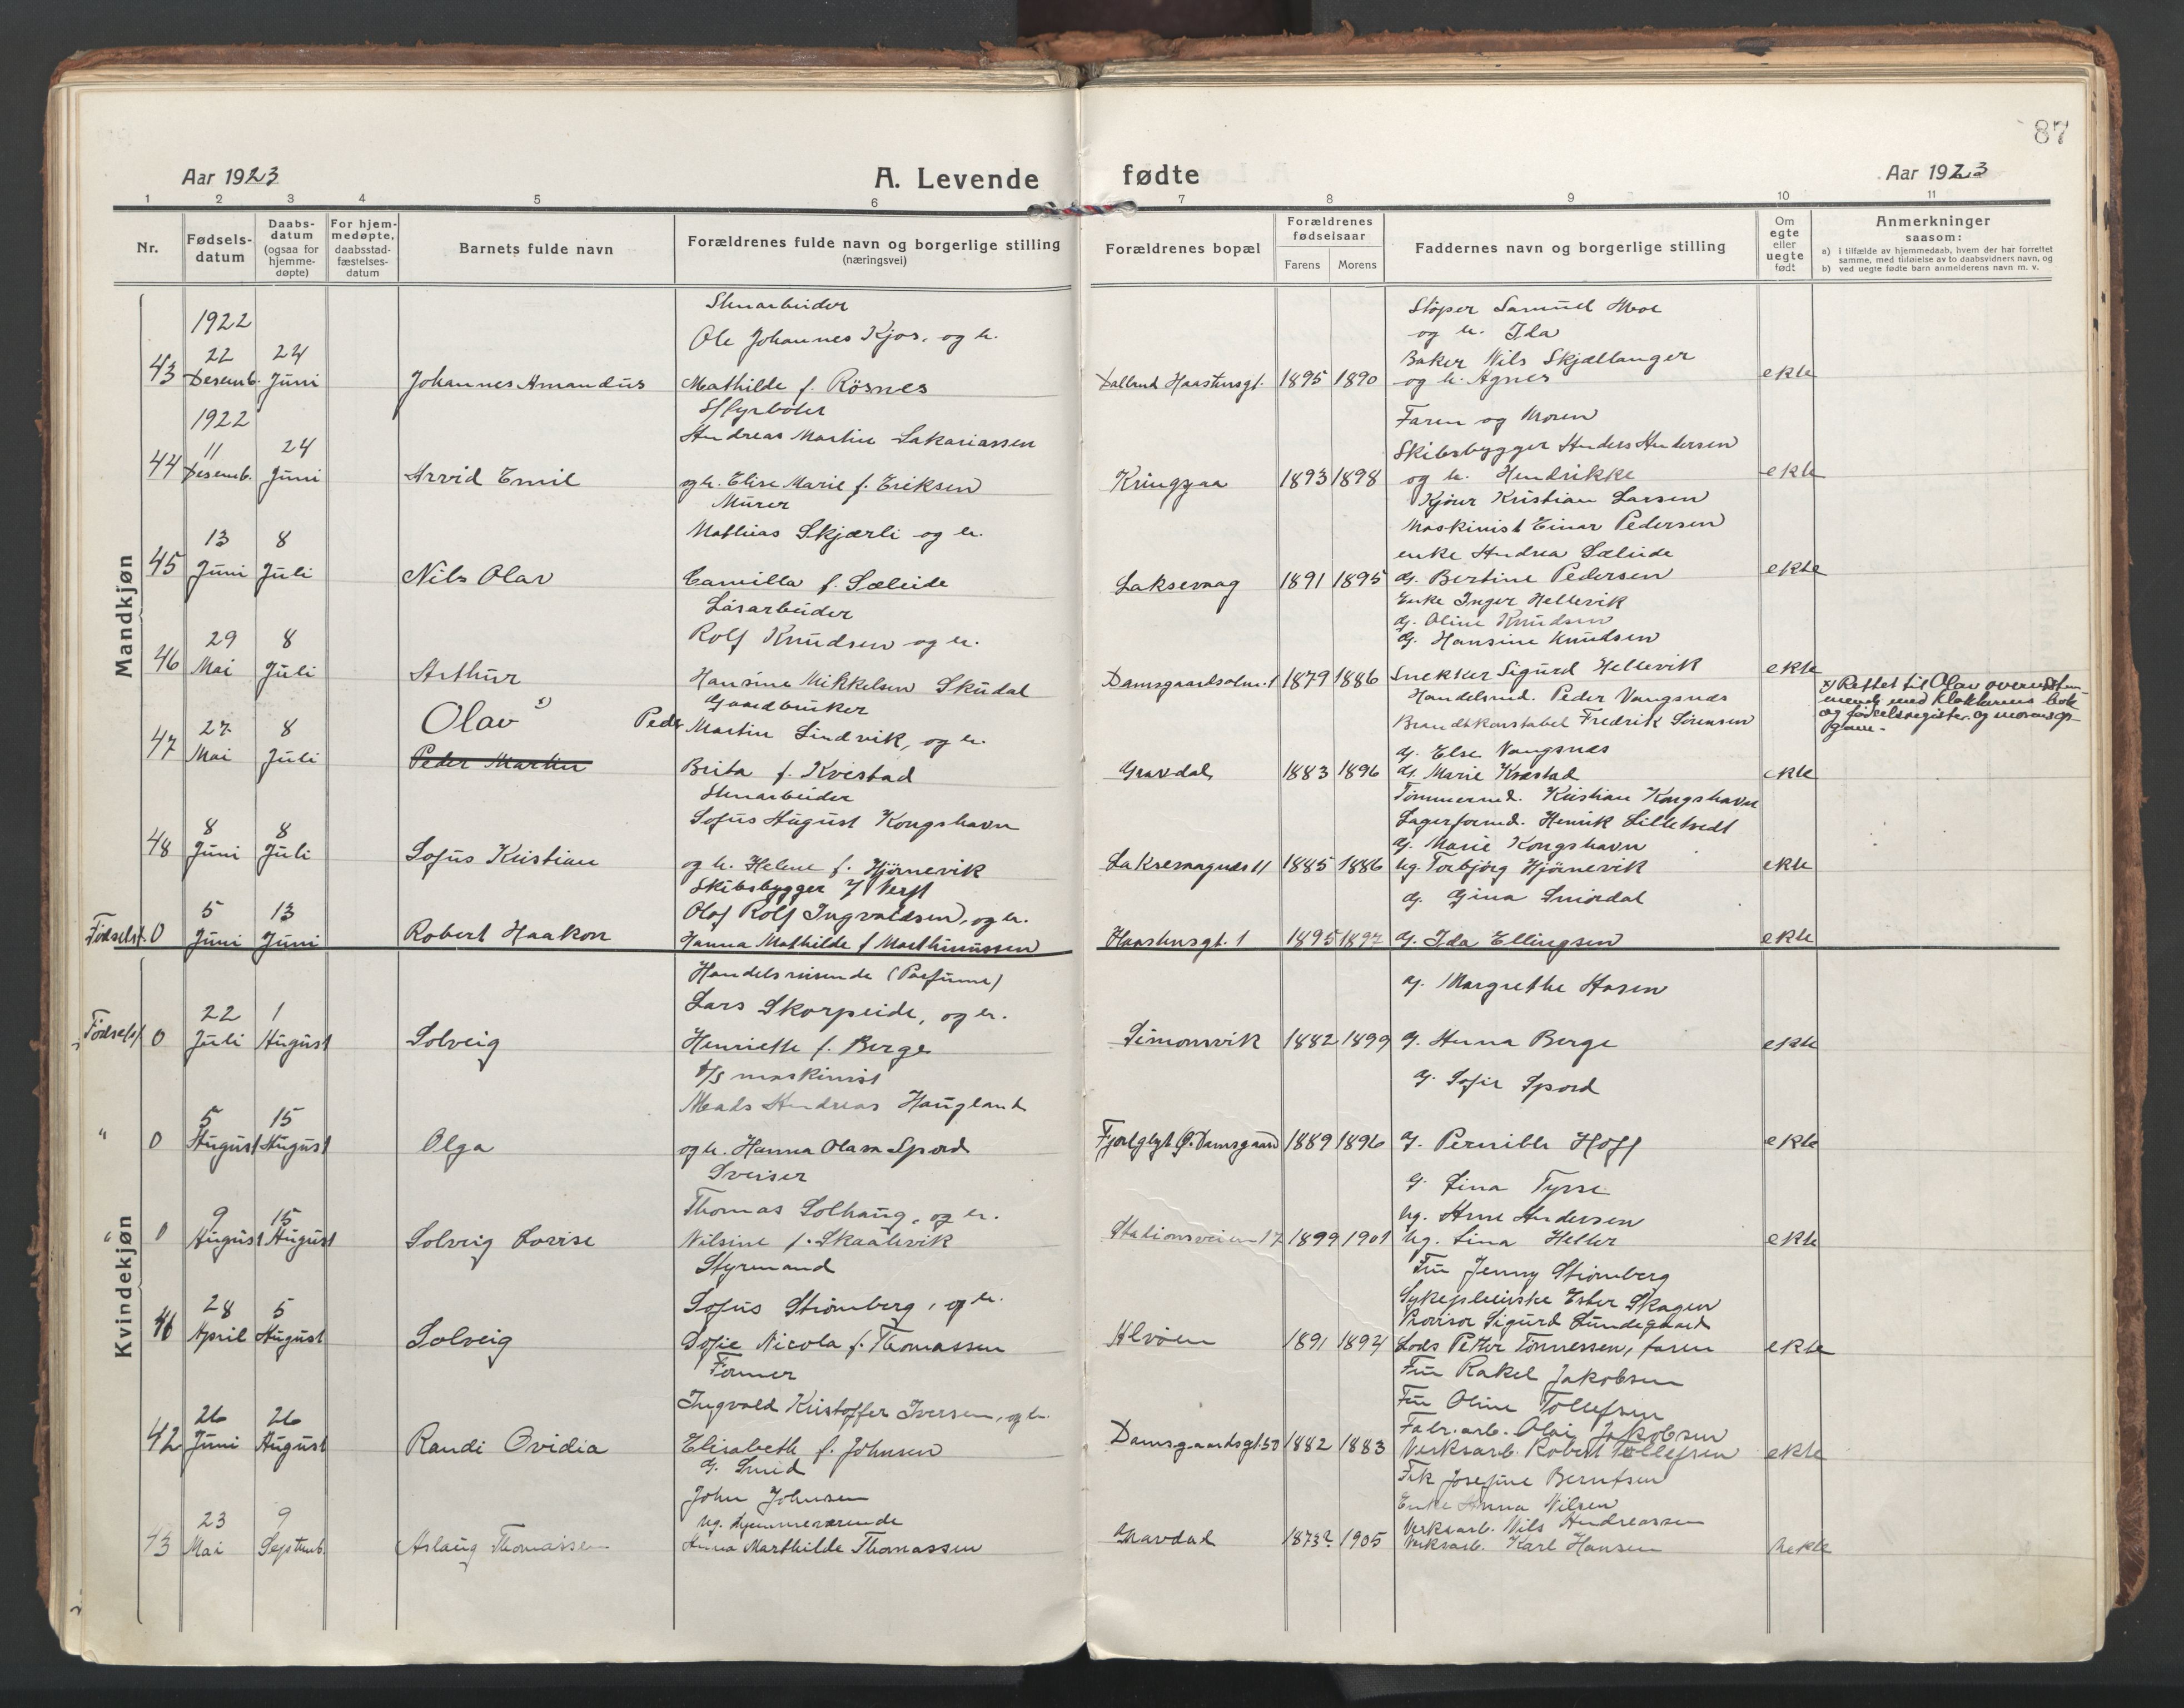 87
Aar 1923
A. Levende
fødte
Aar 1923
1 2 3 4 5 6 7 8 9 10 11
Nr.
Fødsels-
datum
Daabs-
datum
(ogsaa for
hjemme-
døpte)
For hjem-
medøpte,
daabsstad-
fæstelses-
datum
Barnets fulde navn
Forældrenes fulde navn og borgerlige stilling
(næringsvei)
Forældrenes bopæl
Forældrenes
fødselsaar
Farens Morens
Faddernes navn og borgerlige stilling
Om
egte
eller
uegte
født
Anmerkninger
saasom:
a) i tilfælde av hjemmedaab, hvem der har forrettet
samme, med tilføielse av to daabsvidners navn, og
b) ved uegte fødte barn anmelderens navn m. v.
Mandkjøn
1922
43 22 Desemb. 24 Juni
Johannes Amandus
Stenarbeider
Ole Johannes Kjos, og h.
Mathilde f. Rösnes
Haastensgt. 1895 1890
Støper Samuel Moe
og h. Ida
Baker Nils Skjællanger
og h. Agnes
ekte
1922
44 11 Desemb. 24 Juni
Arvid Emil
Andreas Martin Sakariassen
og h. Elise Marie f. Eriksen
Kringsjaa 1893 1898
Faren og Moren
Skibsbygger Anders Andersen
og h. Hendrikke
ekte
45 13 Juni 8 Juli
Nils Olav
Murer
Mathias Skjærli og h.
Camilla f. Sæleide
Laksevaag 1891 1895
Kristian Larsen
Maskinist Einar Pedersen
enke Andrea Sæleide
G. Bertine Pedersen
ekte
46 29 Mai 8 Juli
Arthur
Løsarbeider
Rolf Knudsen og h.
Hansine Mikkelsen Skudal
1879 1886
Enke Inger Hellevik
G. Oline Knudsen
G. Hansine Knudsen
Snekker Sigurd Hellevik
ekte
47 27 Mai 8 Juli
Olav x)
Peder Martin
Gaardbruker
Peder Martin Lindvik, og h.
Brita f. Kvestad
Gravdal 1883 1896
Handelsmd. Peder Vangsnes
Brandkonstabel Fredrik Sørensen
G. Else Vangsnes
G. Marie Kvestad
ekte
x) Rettet til Olav overensstem-
mende med klokkerens bok
og fødselsregister og morens op-
gave.
48 8 Juni 8 Juli
Sofus Kristian
Stenarbeider
Sofus August Kongshavn
og h. Helene f. Hjørnevik
Laksevaagnes 11 1885 1886
Tømmermd. Kristian Kongshavn
Lagerformd. Henrik Lilletvedt
G. Marie Kongshavn
Ug. Torbjørg Hjørnevik
ekte
Fødselst. 0 5 Juni 13 Juni
Robert Haakon
Skibsbygger
Olaf Rolf Ingvaldsen, og h.
Hanna Mathilde f. Marthinussen
Haastensgt. 1 1895 1897
G. Gina Smørdal
G. Ida Ellingsen
ekte
Kvindekjøn
Fødselst. 0 22 Juli 1 August
Solveig
Handelsreisende (Parfume)
Lars Skorpeide, og h.
Henriette f. Berge
Simonsvik 1882 1899
G. Margrethe Hosen
G. Anna Berge
ekte
" 0 5 August 15 August
Olga
D/S maskinist
Mads Andreas Haugland
og h. Hanna Olava Spord
1889 1896
G. Sofie Spord
G. Pernille Hoff
ekte
" 0 9 August 15 August
Solveig Lovise
Sveiser
Thomas Solhaug, og h.
Nilsine f. Skaalevik
Stationsveien 17 1899 1901
G. Lina Tysse
Ug. Arne Andersen
Ug. Lina Heller
ekte
41 28 April 5 August
Solveig
Styrmand
Sofus Strømberg, og h.
Sofie Nicola f. Thomassen
Alvøen 1891 1894
Fru Jenny Strømberg
Sykepleierske Ester Skagen
Provisor Sigurd Lundegaard
Lods Petter Tønnessen, faren
ekte
42 26 Juni 26 August
Randi Ovidia
Former
Ingvald Kristoffer Iversen, og h.
Elisabeth f. Johnsen
Damsgaardsgt. 50 1882 1883
Fru Rakel Jakobsen
Fru Oline Tollefsen
Fabr.arb. Olai Jakobsen
Verksarb. Robert Tollefsen
ekte
43 23 Mai 9 Septemb.
Aslaug Thomassen
G. Smed
John Johnsen
Ug. hjemmeværende
Anna Marthilde Thomassen
Gravdal 1873? 1905
Frk Josefine Berntsen
Enke Anna Nilsen
Verksarb. Nils Andreassen
Verksarb. Karl Hansen
uekte